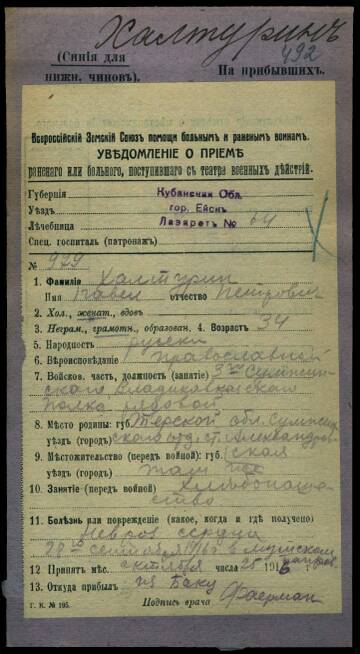 Халтуринъ
492
(Синія для
нижн. чиновъ).
На прибывшихъ.
Всероссійскій Земскій Союзъ помощи больнымъ и раненымъ воинамъ.
УВѢДОМЛЕНІЕ О ПРІЕМѢ
раненаго или больного, поступившаго съ театра военныхъ дѣйствій.
Губернія Кубанская Обл.
Уѣздъ гор. Ейскъ
Лечебница Лазаретъ № 64
Спец. госпиталь (патронажъ)
№ 929
1. Фамилія Халтурин
Имя Павел отчество Петрович
2. Хол., женат., вдовъ
3. Неграм., грамотн., образован. 4. Возрастъ 34
5. Народность русский
6. Вѣроисповѣданіе Православный
7. Войсков. часть, должность (занятіе) 3й
Владикавказскаго
полка рядовой
8. Мѣсто родины: губ. Терской обл.
уѣздъ (городъ) ст. Александров
9. Мѣстожительство (передъ войной): губ. ская
уѣздъ (городъ) там же
10. Занятіе (передъ войной) Хлебопаше
ство
11. Болѣзнь или поврежденіе (какое, когда и гдѣ получено)
Невроз сердца
28го сентября 1916 г. в
12 Принятъ мѣс. октября числа 25 1916
13. Откуда прибылъ из Баку
Г. К. № 195.
Подпись врача Фаерман